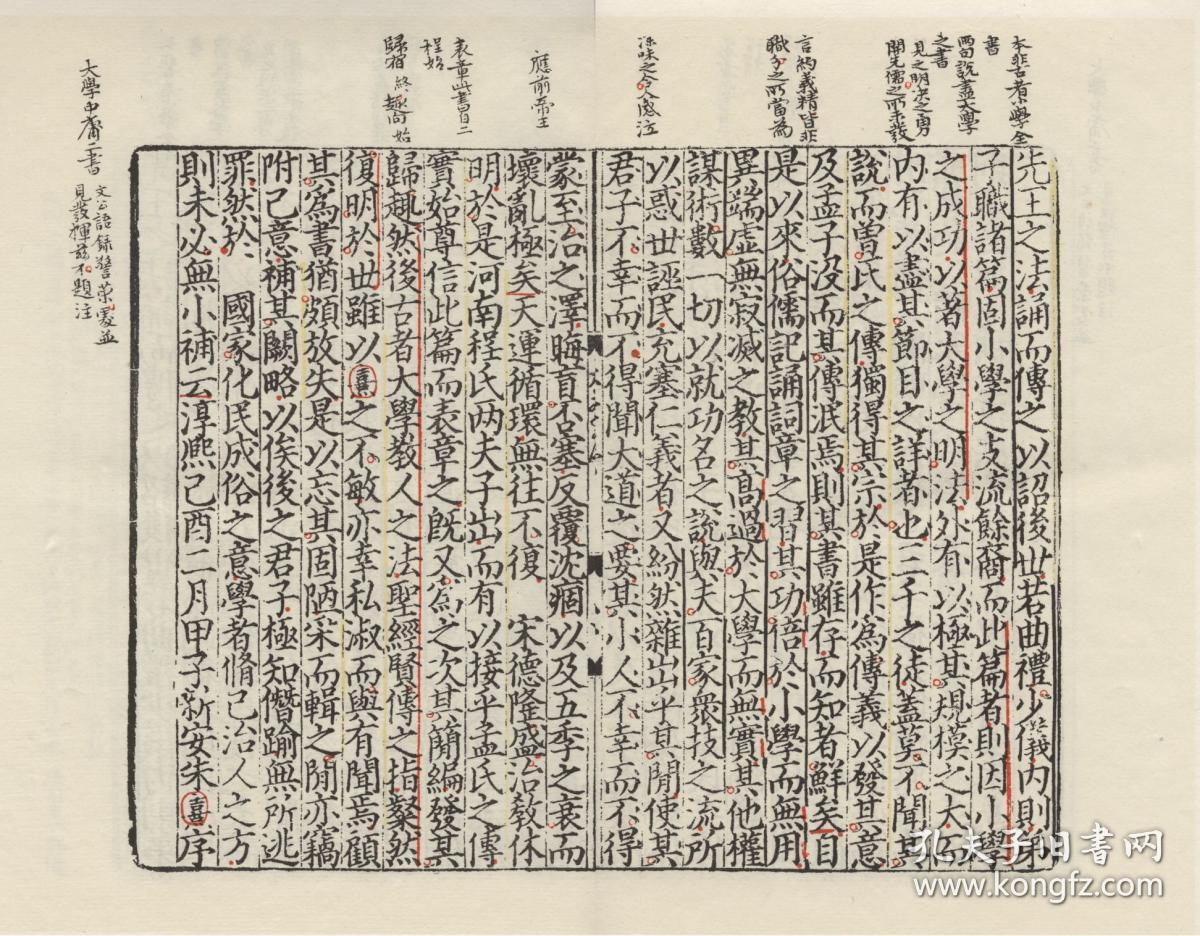 本非古者小學全
書
兩句說盡大學
之書
見之明決之勇
開先儒之所未發
言約義精皆非
職分之所當為
深味之令人感泣
應前帝王
表章此書自二
程始
歸宿 終趣向 始
先王之法誦而傳之以詔後世若曲禮少儀內則弟
子職諸篇固小學之支流餘裔而此篇者則因小學
之成功以著大學之明法外有以極其規模之大而
內有以盡其節目之詳者也三千之徒蓋莫不聞其
說而曾氏之傳獨得其宗於是作為傳義以發其意
及孟子沒而其傳泯焉則其書雖存而知者鮮矣自
是以來俗儒記誦詞章之習其功倍於小學而無用
異端虛無寂滅之教其高過於大學而無實其他權
謀術數一切以就功名之說與夫百家衆技之流所
以惑世誣民充塞仁義者又紛然雜出乎其閒使其
君子不幸而不得聞大道之要其小人不幸而不得
蒙至治之澤晦盲否塞反覆沈痼以及五季之衰而
壞亂極矣天運循環無往不復 宋德隆盛治教休
明於是河南程氏两夫子出而有以接乎孟氏之傳
實始尊信此篇而表章之既又為之次其簡編發其
歸趣然後古者大學教人之法聖經賢傳之指粲然
復明於世雖以熹之不敏亦幸私淑而與有聞焉顧
其為書猶頗放失是以忘其固陋采而輯之閒亦竊
附己意補其闕略以俟後之君子極知僭踰無所逃
罪然於 國家化民成俗之意學者脩己治人之方
則未必無小補云淳熙己酉二月甲子新安朱熹序
大學中庸二書
文公語録
見發揮 題注
孔夫子旧书网
www.kongfz.com